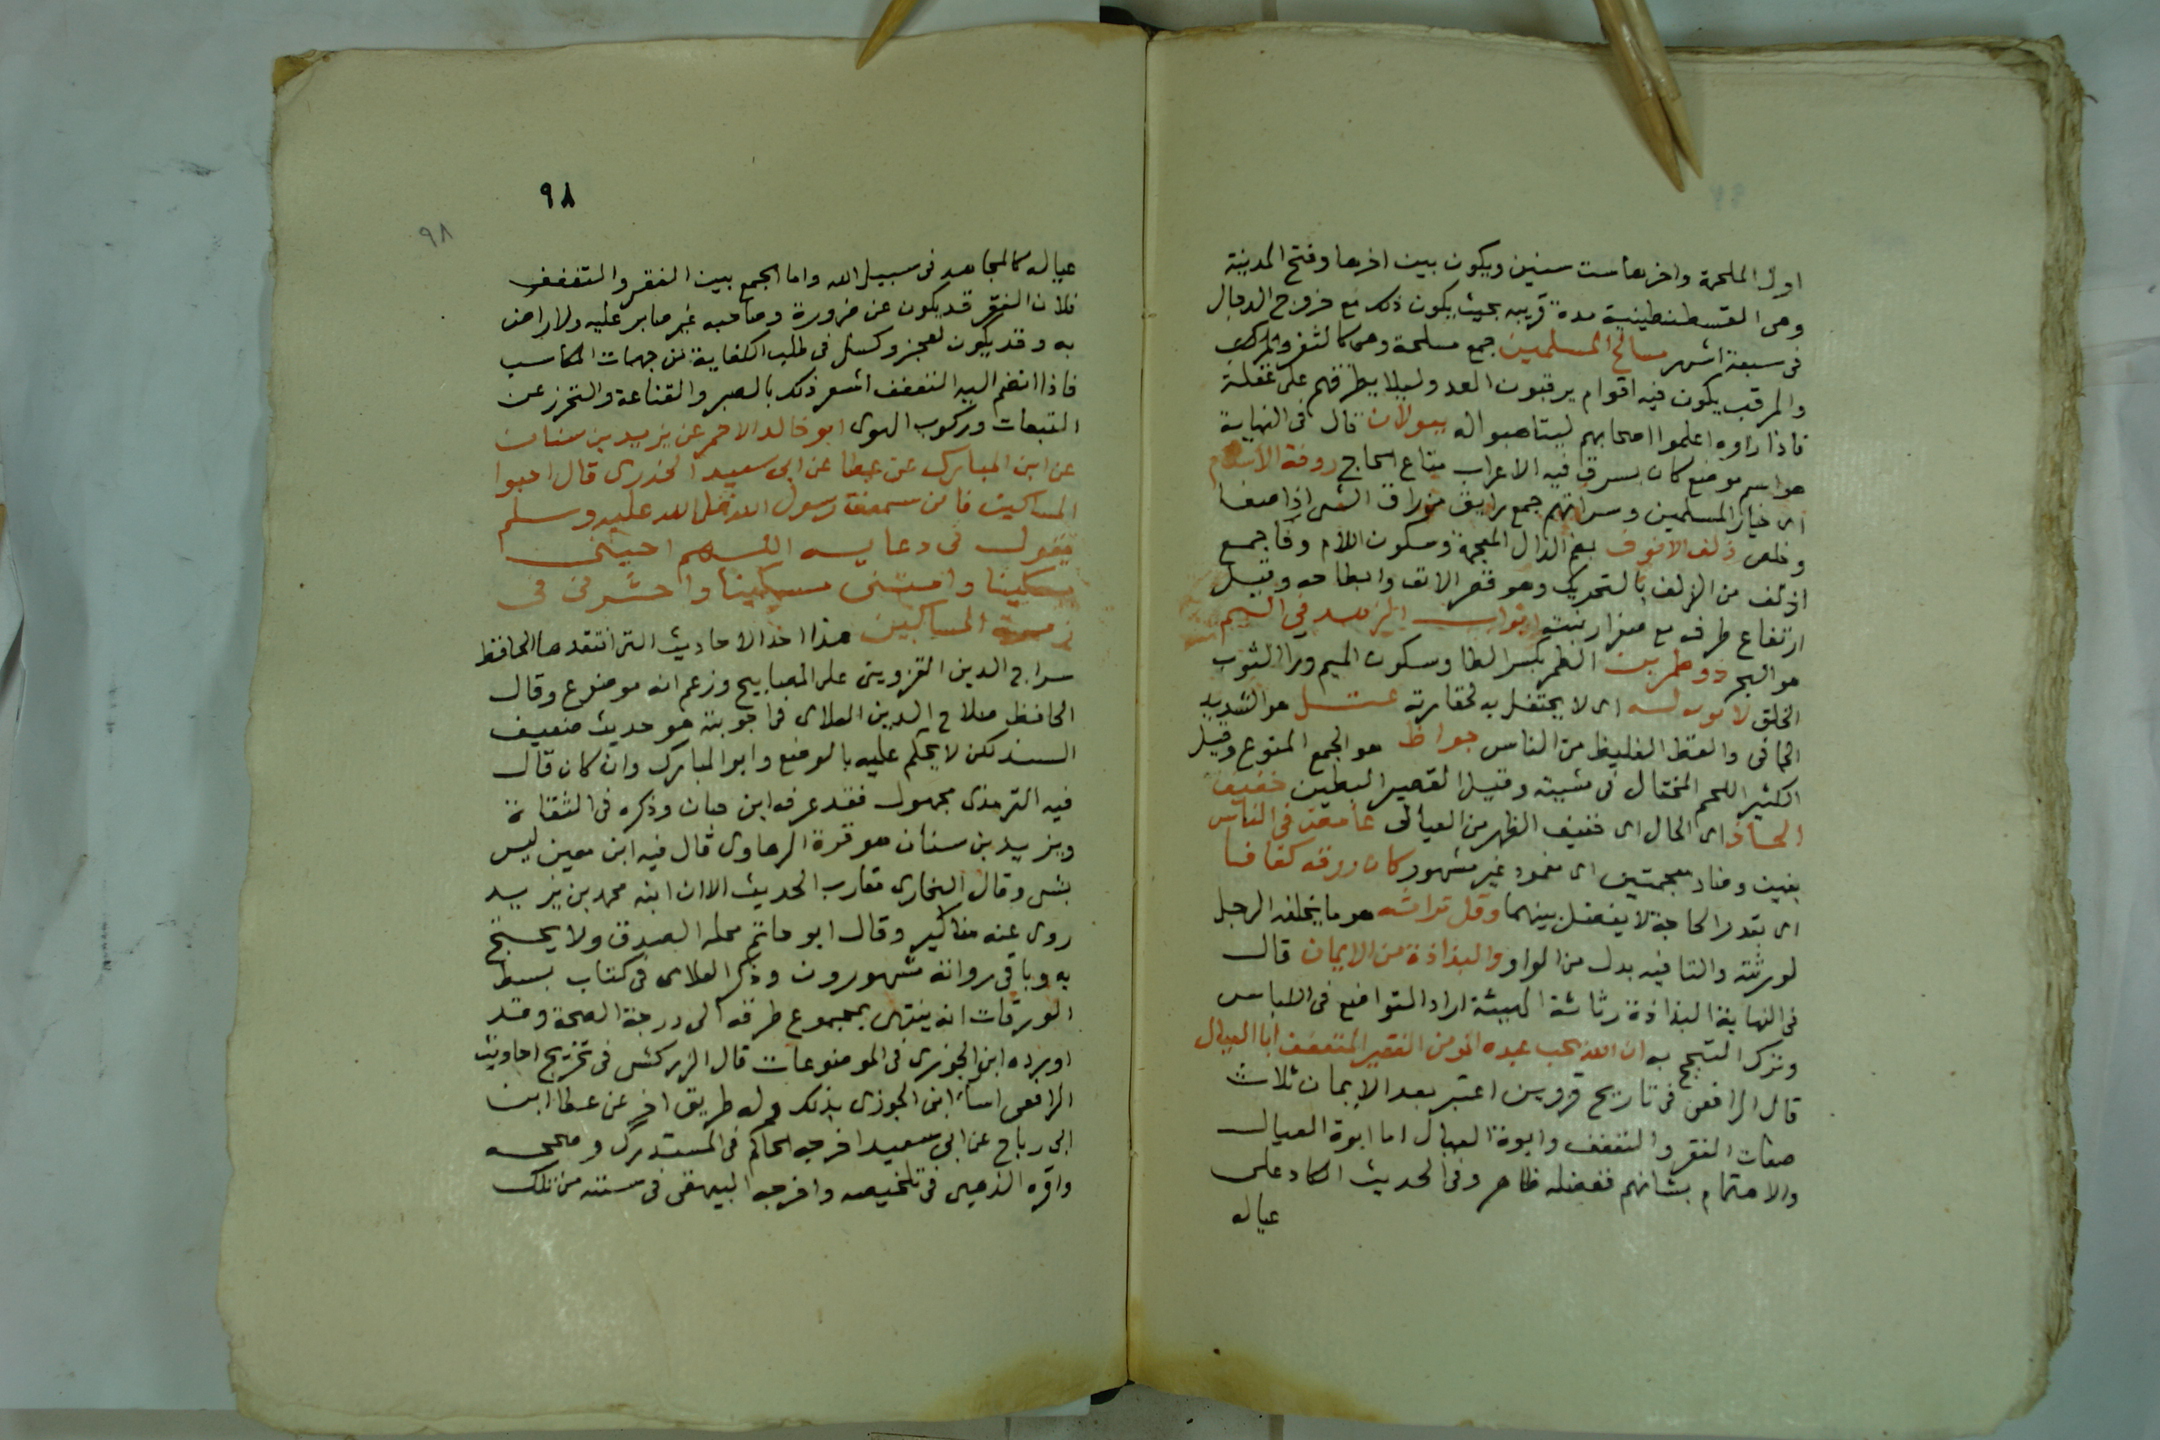 اول الملحمة واخرها ست سنين ويكون بين اخرها وفتح المدينة
وهى القسطنطينية مدة قريبه بحيث يكون ذلك مع خروج الدجال
فى سبعة اشهر مسالح المسلمين جمع مسلحة وهى كالثغر والمرقب
والمرقب يكون فيه اقوام يرقبون العدو ليلا يطرقهم على غفلة
فاذا راوه اعلموا اصحابهم ليتاهبوا له ببولان قال فى النهاية
هو اسم موضع كان يسرق فيه الاعراب متاع الحاج روقة الاسلام
اى خيار المسلمين وسراتهم جمع رايق من راق الشى اذا صفا
وخلص ذلف الانوف بضم الذال المعجمة وسكون اللام وفا جمع
اذلف من الذلف بالتحريك وهو قصر الانف وانبطاحه وقيل
ارتفاع طرفه مع صغر ارنبته ابواب الزهد فى اليم
هو البحر ذو طمرين الطمر بكسر الطا وسكون الميم ورا الثوب
الخلق لا يوبه له اى لا يحتفل به لحقارته عتل هو الشديد
الجافى والفظ الغليظ من الناس جواظ هو الجمع المنوع وقيل
الكثير اللحم المختال فى مشيته وقيل القصير البطين خفيف
الحاذ اى الحال اى خفيف الظهر من العيال غامض فى الناس
بغين وضاد معجمتين اى مغمود غير مشهور كان رزقه كفافا
اى بقدر الحاجة لا يفضل بينهما وقل تراثه هو ما يخلفه الرجل
لورثته والتا فيه بدل من الواو والبذاذة من الايمان قال
فى النهاية البذاذة رثاثة الهيئة اراد التواضع فى اللباس
وترك التبجح به ان الله يحب عبده المومن الفقير المتعفف ابا العيال
قال الرافعى فى تاريخ قزوين اعتبر بعد الايمان ثلاث
صفات الفقر والتعفف وابوة العيال اما ابوة العيال
والاهتمام بشانهم ففضله ظاهر وفى الحديث الكاد على
عياله
٩٨
٩٨
عياله كالمجاهد فى سبيل الله واما الجمع بين الفقر والتعفف
فلان الفقر قد يكون عن ضرورة وصاحبه غير صابر عليه ولا راض
به وقد يكون لعجز وكسل فى طلب الكفاية من جهات المكاسب
فاذا انضم اليه التعفف اشعر ذلك بالصبر والقناعة والتحرز عن
التبعات وركوب الهوى ابو خالد الاحمر عن يزيد بن سنان
عن ابن المبارك عن عطا عن ابى سعيد الخدرى قال احبوا
المساكين فانى سمعت رسول الله صلى الله عليه وسلم
يقول فى دعايه اللهم احينى
مسكينا وامتنى مسكينا واحشرنى فى
زمرة المساكين هذا احد الاحاديث التى انتقدها الحافظ
سراج الدين القزوينى على المصابيح وزعم انه موضوع وقال
الحافظ صلاح الدين العلاى فى اجوبته هو حديث ضعيف
السند لكن لا يحكم عليه بالوضع وابو المبارك وان كان قال
فيه الترمذى مجهول فقد عرفه ابن حبان وذكره فى الثقات
ويزيد بن سنان هو قروة الرهاوى قال فيه ابن معين ليس
بشى وقال البخارى مقارب الحديث الا ان ابنه محمد بن يزيد
روى عنه مناكير وقال ابو حاتم محله الصدق ولا يحتج
به وباقى رواته مشهورون وذكر العلاى فى كتاب بسط
الورقات انه ينتهى بمجموع طرقه الى درجة الصحة وقد
اورده ابن الجوزى فى الموضوعات قال الزركشى فى تخريج احاديث
الرافعى اسا ابن الجوزى بذلك وله طريق اخر عن عطا ابن
ابى رباح عن ابى سعيد اخرجه الحاكم فى المستدرك وصححه
واقره الذهبى فى تلخيصه واخرجه البيهقى فى سننه من تلك